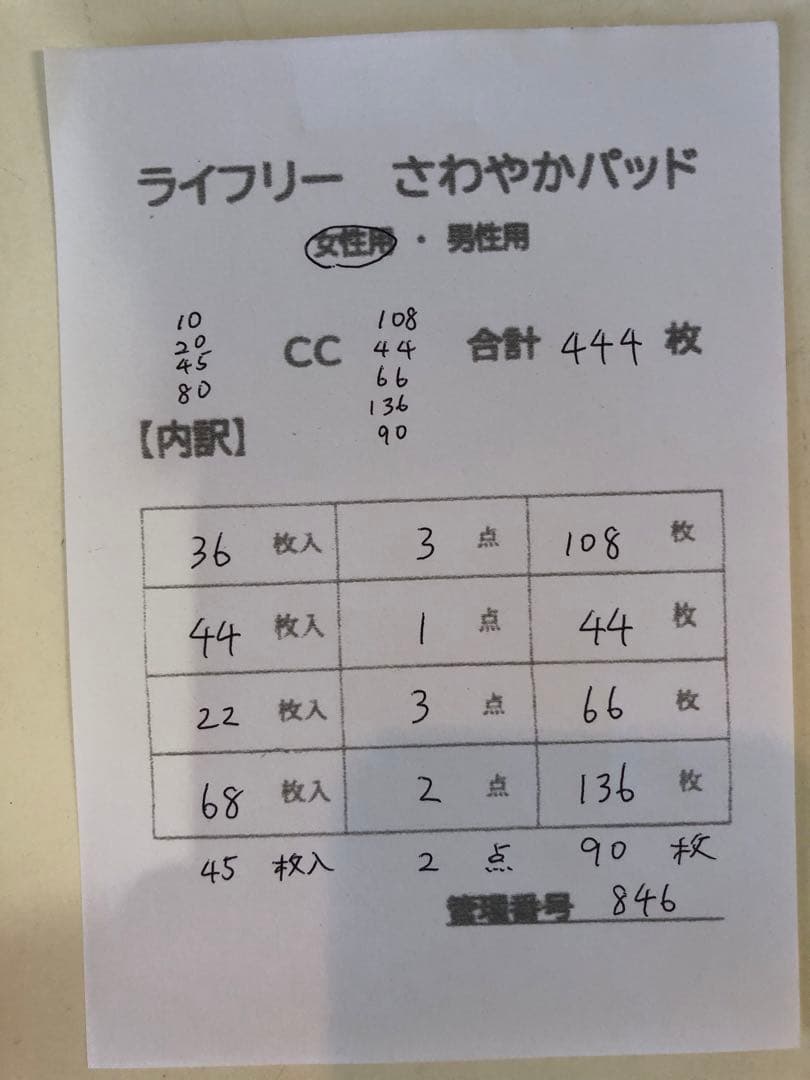 ライフリー さわやかパッド
女性用 ・ 男性用
10
20
45
80
CC
108
44
66
136
90
合計 444 枚
【内訳】
36 枚入 3 点 108 枚
44 枚入 1 点 44 枚
22 枚入 3 点 66 枚
68 枚入 2 点 136 枚
45 枚入 2 点 90 枚
管理番号 846